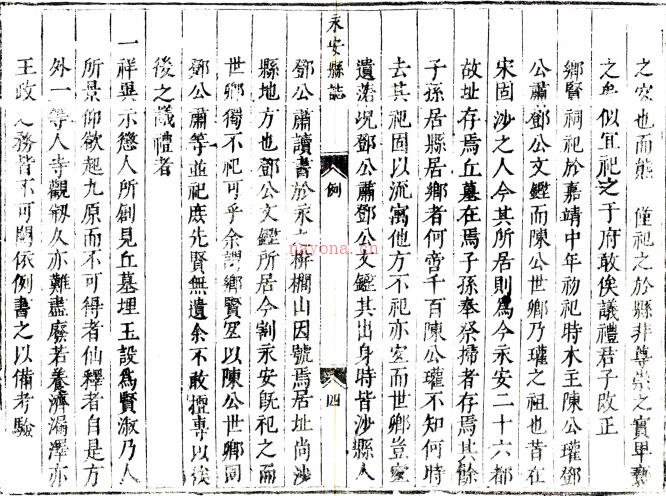 之也而 僅祀之於縣非尊崇之實卑褻
之似宜祀之于府敢俟議禮君子改正
鄉賢祠祀於嘉靖中年初祀時木主陳公瓘鄧
公肅鄧公文鏗而陳公世卿乃瓘之祖也昔在
宋固沙之人今其所居則為今永安二十六都
故址存焉丘墓在焉子孫奉祭掃者存焉其餘
子孫居縣居鄉者何啻千百陳公瓘不知何時
去其祀固以流寓他方不祀亦宜而世卿豈容
遺落况鄧公肅鄧公文鏗其出身時皆沙縣人
永安縣誌 例 四
鄧公肅讀書於永之栟櫚山因號焉居址尚沙
縣地方也鄧公文鏗所居今割永安旣祀之而
世卿獨不祀可乎余謂鄉賢宜以陳公世卿同
鄧公肅等並祀庶先賢無遺余不敢擅專以俟
後之議禮者
一祥異示懲人所創見丘墓埋玉設為賢淑乃人
所景仰欲起九原而不可得者仙釋者自是方
外一等人寺觀剏久亦難盡廢若養濟漏澤亦
王政之務皆不可闕依例書之以備考驗
nayona.cn